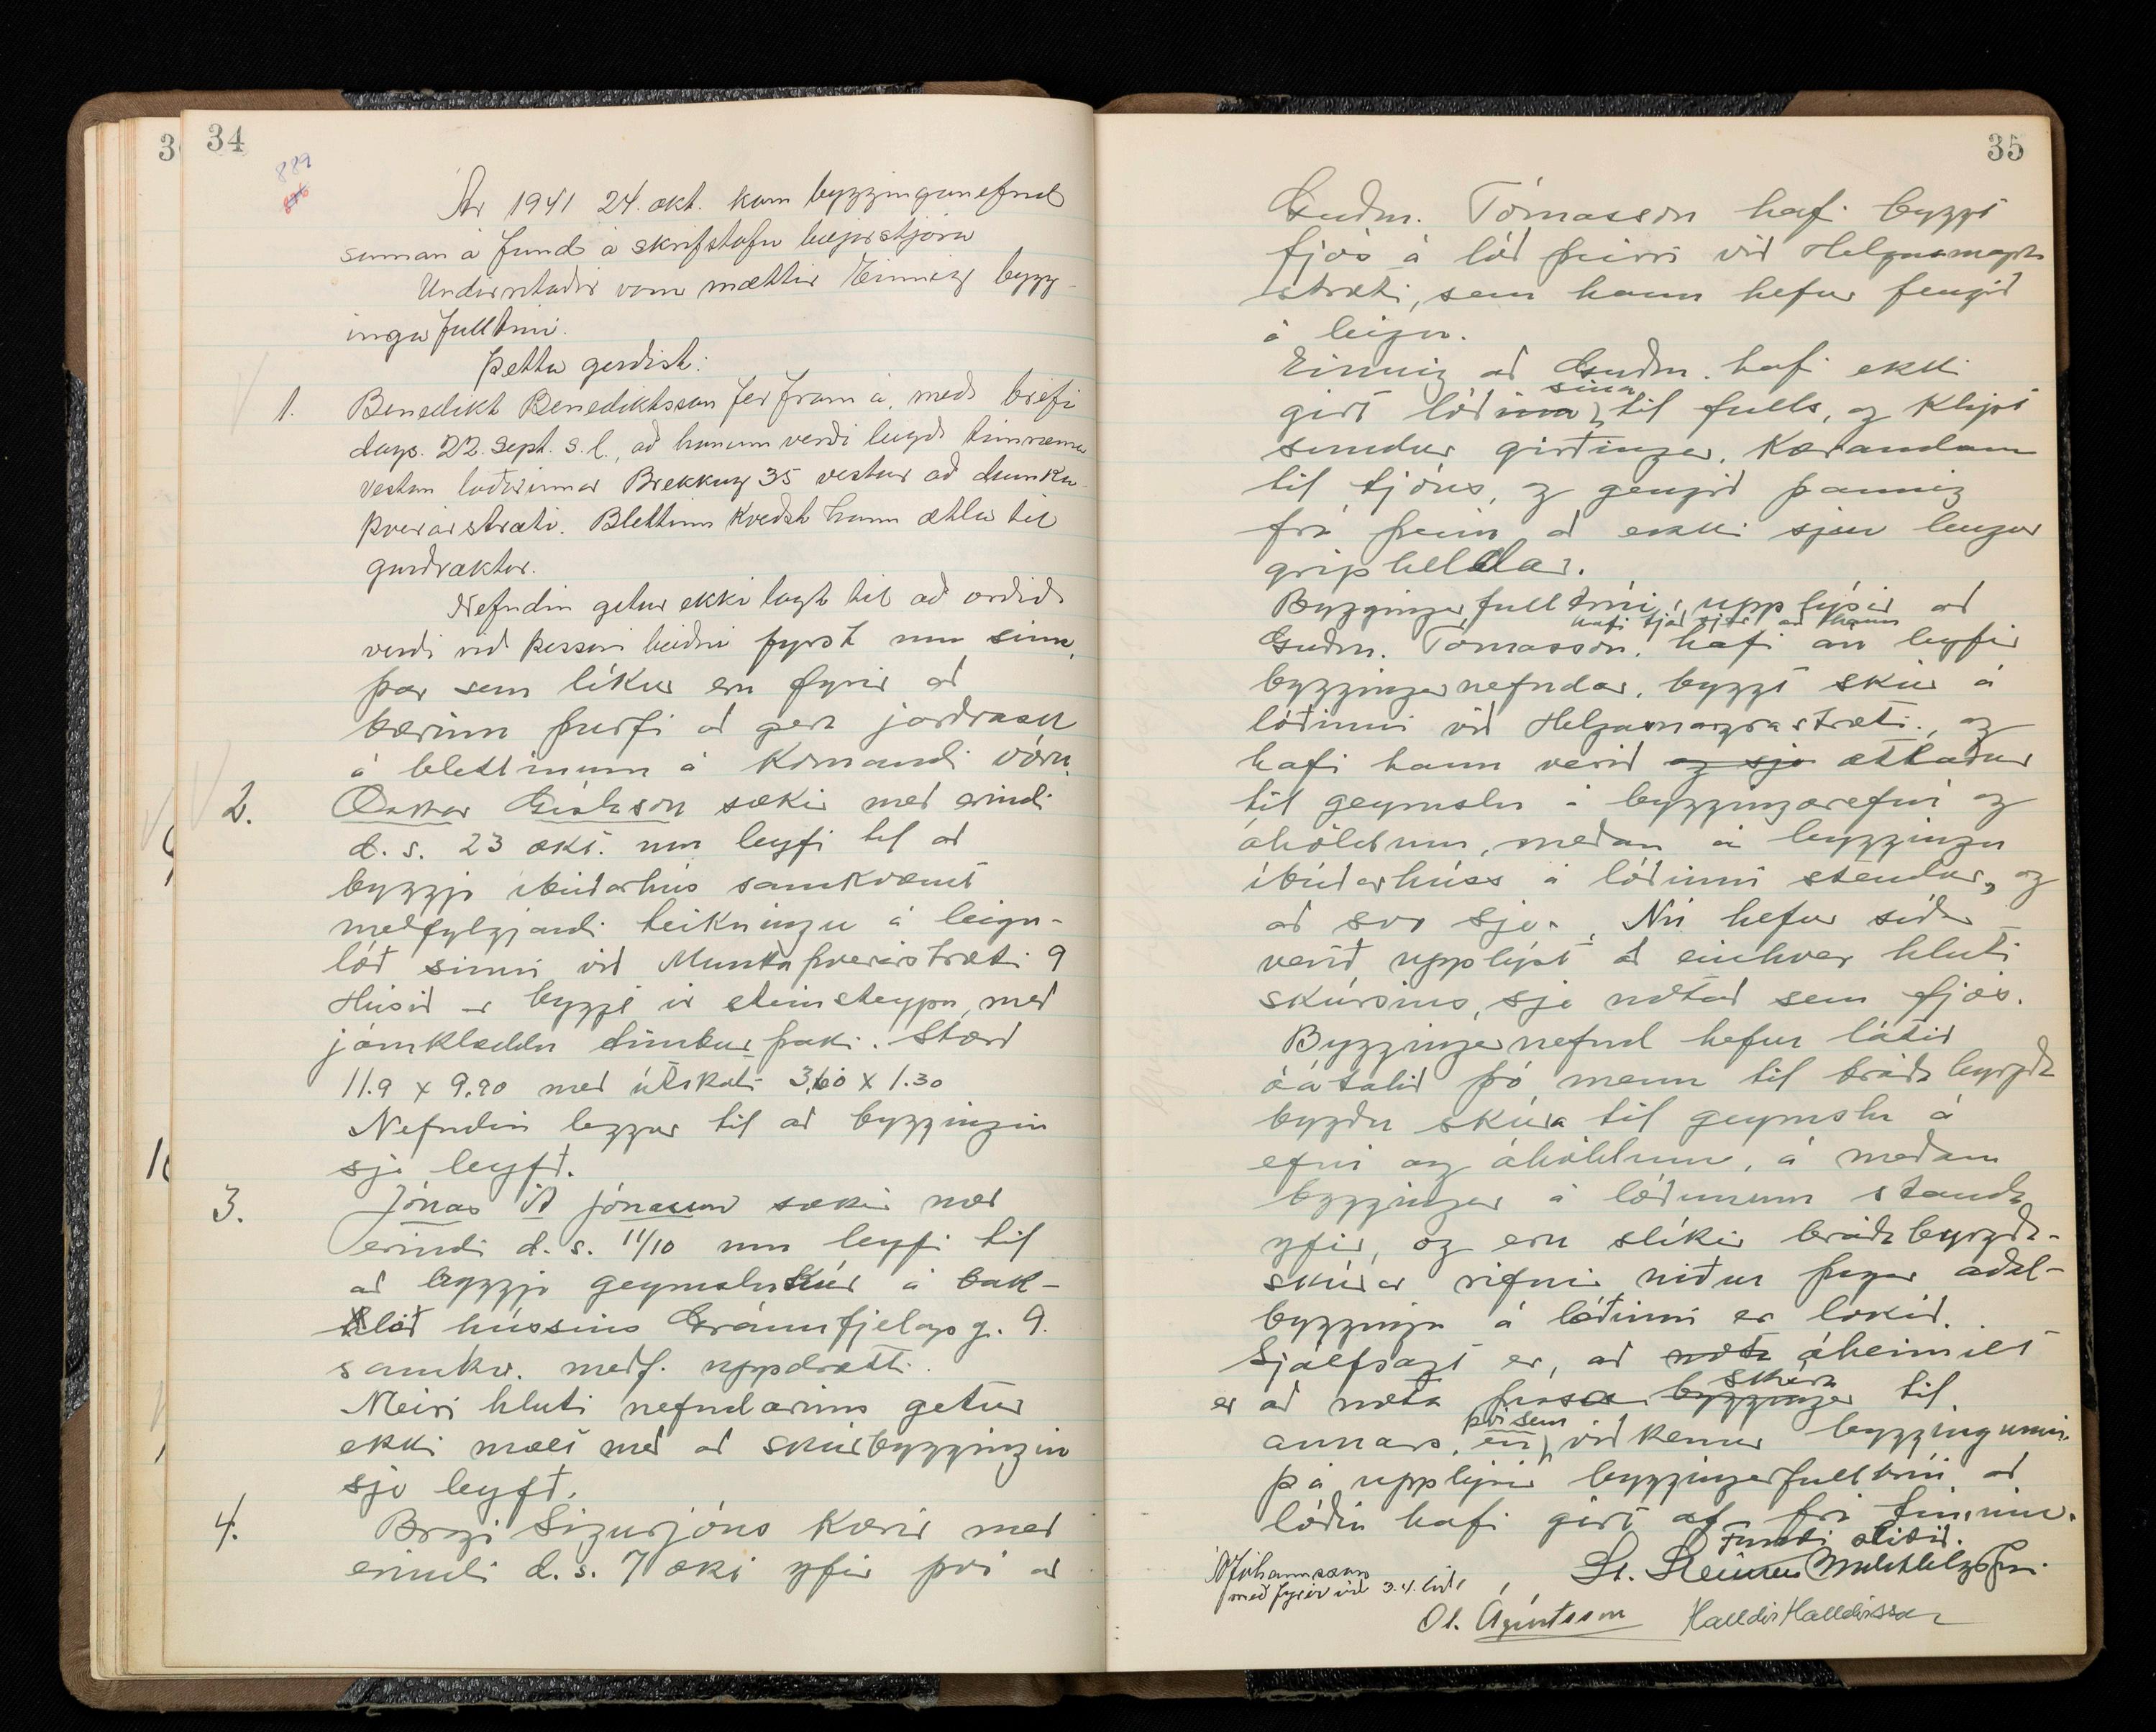 34
889
Ár 1941 24. okt. kom byggingarnefnd
saman á fund á skrifstofu bæjarstjóra
Undirritaðir voru mættir Einnig bygg-
ingafulltrúi.
Þetta gerðist:
1. Benedikt Benediktsson fer fram á, með brefi
dags. 22. Sept. s.l., að honum verði leigð
vestan lóðarinnar Brekkug 35 vestur að Munka-
þverárstræti. Blettinn kveðst hann ætla til
garðræktar.
Nefndin getur ekki lagt til að orðið
verði við þessari beiðni fyrst um sinn,
þar sem líkur eru fyrir að
bærinn þurfi að gera jarðrask
á blettinum á komandi vori.
2. Óskar Gíslason sækir með erindi
d.s. 23 okt. um leyfi til að
byggja íbúðarhús samkvæmt
meðfylgjandi teikningu á leigu-
lóð sinni við Munkaþverárstræti 9
Húsið er byggt úr steinsteypu með
járnklæddu timburþaki. Stærð
11.9 x 9.90 með útskoti 3,60 x 1.30
Nefndin leggur til að byggingin
sje leyfð.
3. Jónas H Jónasson sækir með
erindi d.s. 11/10 um leyfi til
að byggja geymsluskúr á bak-
lóð hússins Gránufjelags g. 9.
samkv. meðf. uppdrætti.
Meiri hluti nefndarinnar getur
ekki mælt með að skúrbyggingin
sje leyfð.
4. Bragi Sigurjóns kærir með
erindi d.s. 7 okt yfir því að
35
Guðm. Tómasson hafi byggt
fjós á lóð þeirri við Helgamagra
stræti, sem hann hefur fengið
á leigu.
Einnig að Guðm. hafi ekki
sína
girt lóðina til fulls, og klipt
sundur girðingar, kærandanum
til tjóns, og gengið þannig
frá þeim að ekki sjeu lengur
gripheldar.
Byggingarfulltrúi upplýsir að
hafi tjáð sjer að hann
Guðm. Tómasson, hafi án leyfis
byggingarnefndar, byggt skúr á
lóðinni við Helgamagrastræti, og
hafi hann verið og sje ætlaður
til geymslu á byggingarefni og
áhöldum, meðan á byggingu
íbúðarhúss á lóðinni stendur, og
að svo sje. Nú hefur síðar
verið upplýst að einhver hluti
skúrsins, sje notað sem fjós.
Byggingarnefnd hefur látið
óátalið þó menn til bráðabyrgða
bygðu skúra til geymslu á
efni og áhöldum, á meðan
byggingar á lóðunum standa
yfir, og eru slíkir bráðabyrgða-
skúrar rifnir niður þegar aðal-
byggingu á lóðinni er lokið.
Sjálfsagt er, að nota óheimilt
skúra
er að nota þessa byggingar til
því sem
annars, en viðkemur byggingunni.
Þá upplýsir byggingarfulltrúi að
lóðin hafi girt af frá
Fundi slitið.
Jóhannsson
með fyrir við 3. 4. lið
St. Steinsen
Ol. Ágústsson Halldór Halldórsson